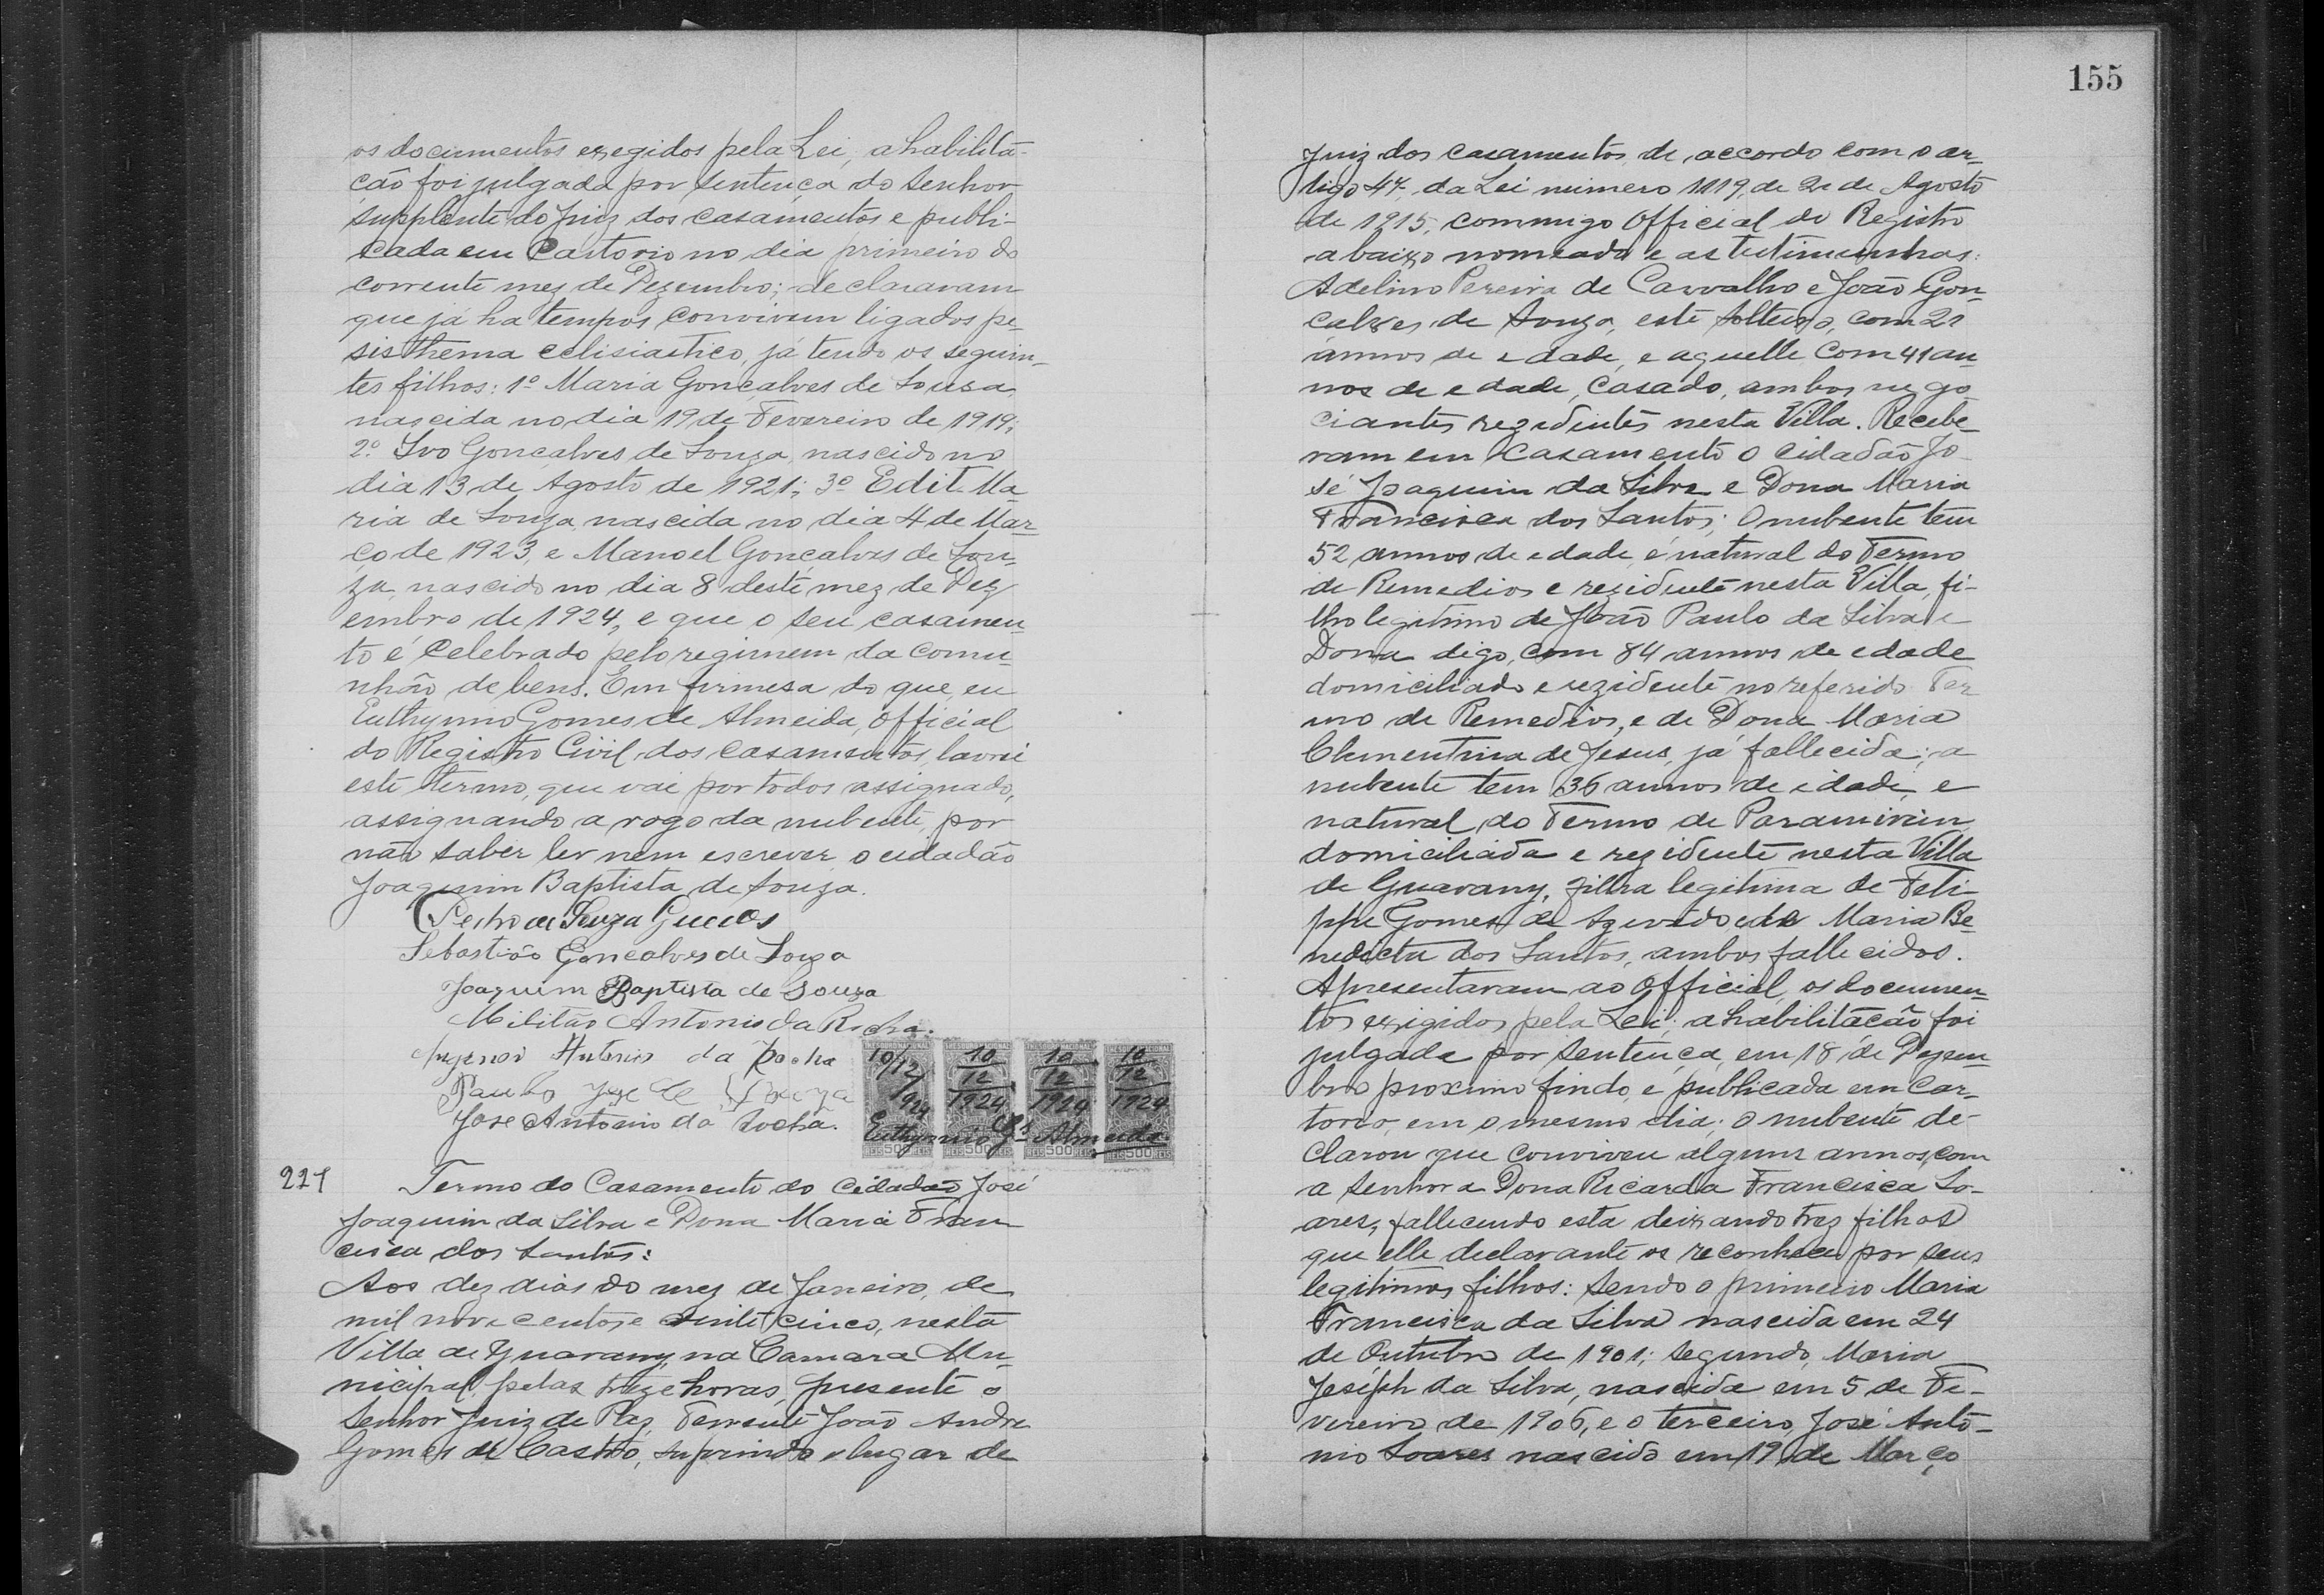 os documentos exegidos pela Lei, a habilita-
ção foi julgada por sentença do Senhor
supplente do Juiz dos casamentos e publi-
cada em Cartorio no dia primeiro do
corrente mez de Dezembro; declaravam
que já ha tempos convivem ligados pe-
sisthema eclisiastico, já tendo os seguin-
tes filhos: 1º Maria Gonçalves de Sousa
nascida no dia 19 de Fevereiro de 1919;
2º Ivo Gonçalves de Souza, nascido no
dia 13 de Agosto de 1921; 3º Edit Ma-
ria de Souza nascida no dia 4 de Mar-
ço de 1923, e Manoel Gonçalves de Sou-
za, nascido no dia 8 deste mez de Dez
embro de 1924, e que o seu casamen-
to é celebrado pelo regimem da comu-
nhão de bens. Em firmesa do que, eu
Euthymio Gomes de Almeida, Official
do Registro Civil dos casamentos, lavrei
este termo, que vai por todos assignado,
assignando a rogo da nubente, por
não saber ler nem escrever o cidadão
Joaquim Baptista de Souza.
Pedro de Souza
Sebastião Gonçalves de Souza
Joaquim Baptista de Souza
Militão Antonio da Rocha.
Antonio da Rocha
José Antonio da Rocha.
10/12 10 10 10
12 12 12
1924 1924 1924 1924
Euthymio Gs Almeida
REIS 500 REIS REIS 500 REIS REIS 500 REIS REIS 500 REIS
221
Termo do Casamento do Cidadão José
Joaquim da Silva e Dona Maria Fran
cisca dos Santos:
Aos dez dias do mez de Janeiro, de
mil nove centos e vinte cinco, nesta
Villa de Guarany, na Camara Mu-
nicipal, pelas treze horas, presente o
Senhor Juiz de Paz, Tenente João Andre
Gomes de Castro, suprindo o lugar de
155
Juiz dos casamentos de accordo com o ar-
tigo 47, da Lei numero 1119, de 21 de Agosto
de 1915, commigo Official do Registro
abaixo nomeado e as testimunhas:
Adelino Pereira de Carvalho e João Gon-
calves de Souza, este solteiro, com 21
annos de edade, e aquelle com 41 an-
nos de edade, casado, ambos nego
ciantes rezidentes nesta Villa. Recebe-
ram em casamento o cidadão Jo-
sé Joaquim da Silva e Dona Maria
Francisca dos Santos; O nubente tem
52 annos de edade, é natural do Termo
de Remedios e rezidente nesta Villa, fi-
lho legitimo de João Paulo da Silva e
Dona digo, com 84 annos de edade
domiciliado e rezidente no referido Ter
mo de Remedios, e de Dona Maria
Clementina de Jesus, já fallecida; a
nubente tem 36 annos de edade, e
natural do Termo de Paramirim
domiciliada e rezidente nesta Villa
de Guarany, filha legitima de Feli-
ppe Gomes de Azevedo e de Maria Be-
nedicta dos Santos, ambos fallecidos.
Apresentaram ao Official, os documen-
tos exigidos pela Lei; a habilitação foi
julgada por sentença, em 18 de Dezem-
bro proximo findo, e publicada em Car-
torio, em o mesmo dia; O nubente de-
clarou que conviveu alguns annos, com
a Senhora Dona Ricarda Francisca So-
ares, fallecendo esta deixando trez filhos
que elle declarante os reconhece por seus
legitimos filhos: sendo o primeiro Maria
Francisca da Silva nascida em 24
de Outubro de 1901; segundo, Maria
Jesiph da Silva, nascida em 5 de Fe-
vereiro de 1906, e o terceiro, José Anto-
nio Soares nascido em 19 de Março